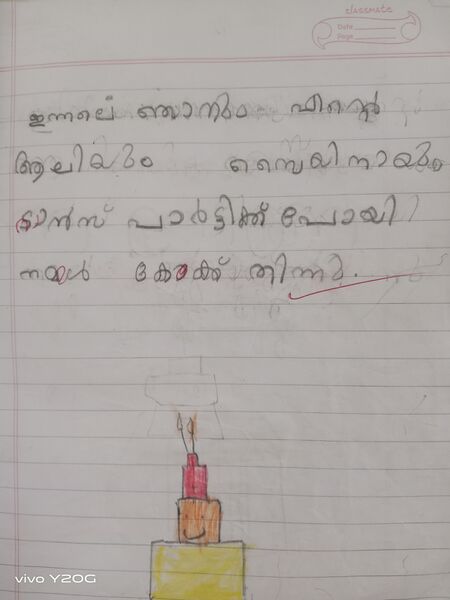 classmate
Date
Page
ഇന്നലെ ഞാനും എന്റെ
ആലിയും സൈയിനായും
ഡാൻസ് പാർട്ടിക്ക് പോയി
നമ്മൾ കേക്ക് തിന്നു.
vivo Y20G